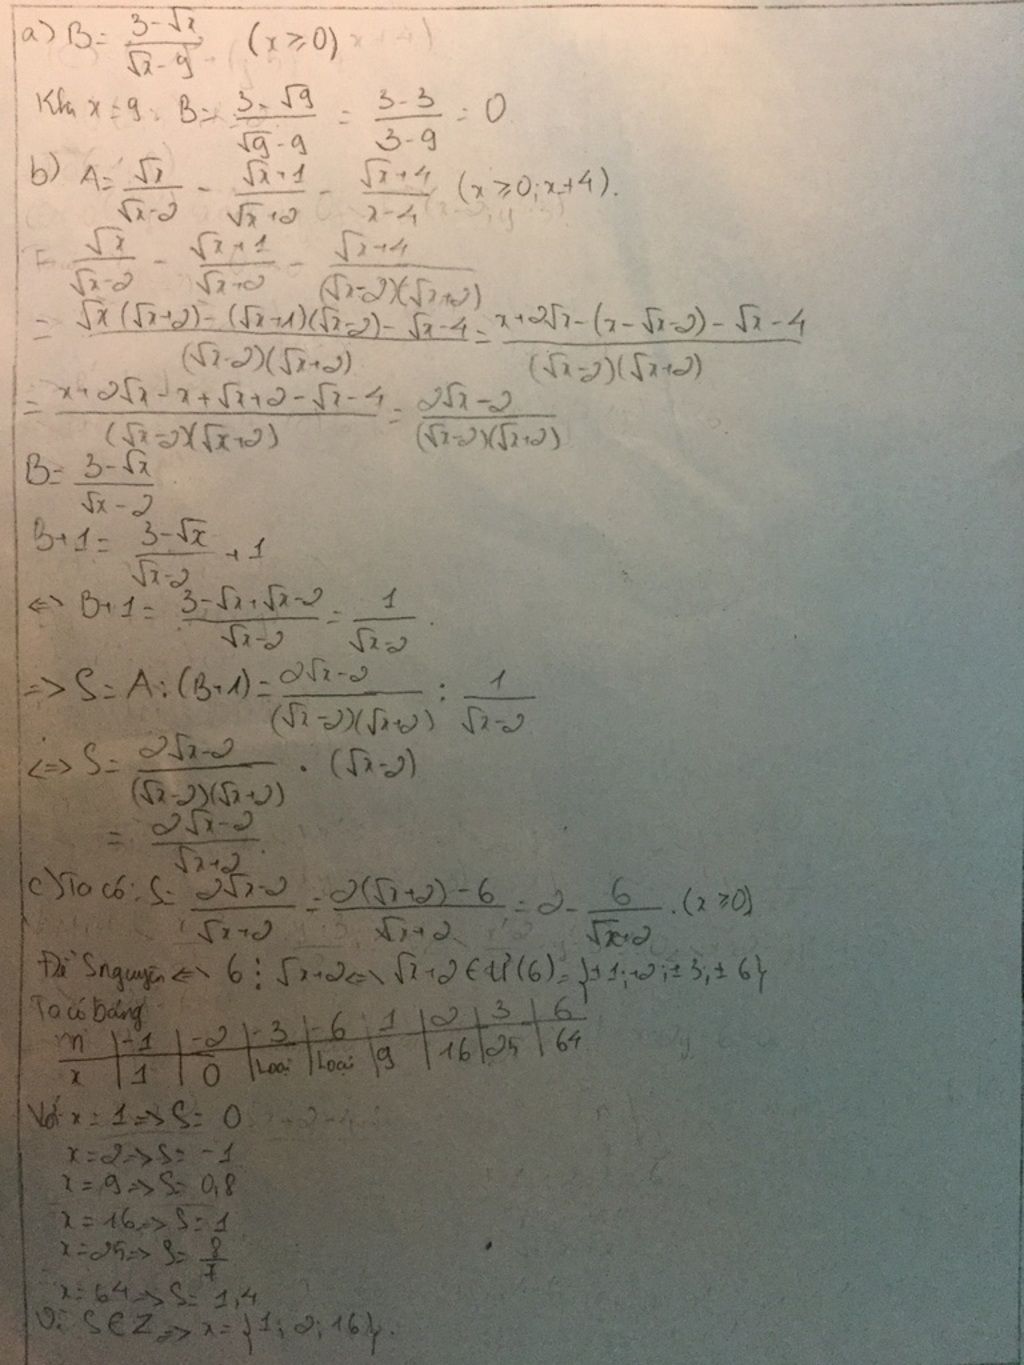 a) B = (3-√x)/(√x-9) (x ≥ 0)
Khi x = 9 : B = (3-√9)/(√9-9) = (3-3)/(3-9) = 0
b) A = √x/(√x-2) - (√x+1)/(√x+2) - (√x+4)/(x-4) (x ≥ 0; x ≠ 4).
= √x/(√x-2) - (√x+1)/(√x+2) - (√x+4)/((√x-2)(√x+2))
= (√x(√x+2) - (√x+1)(√x-2) - √x-4)/((√x-2)(√x+2)) = (x+2√x-(x-√x-2)-√x-4)/((√x-2)(√x+2))
= (x+2√x-x+√x+2-√x-4)/((√x-2)(√x+2)) = (2√x-2)/((√x-2)(√x+2))
B = (3-√x)/(√x-2)
B+1 = (3-√x)/(√x-2) + 1
<=> B+1 = (3-√x+√x-2)/(√x-2) = 1/(√x-2).
=> S = A : (B+1) = (2√x-2)/((√x-2)(√x+2)) : 1/(√x-2)
<=> S = (2√x-2)/((√x-2)(√x+2)) . (√x-2)
= (2√x-2)/(√x+2).
c) Ta có: S = (2√x-2)/(√x+2) = (2(√x+2)-6)/(√x+2) = 2 - 6/(√x+2). (x ≥ 0)
Để S nguyên <=> 6 ⋮ √x+2 <=> √x+2 ∈ Ư(6) = {±1; ±2; ±3; ±6}
Ta có bảng
m | -1 | -2 | -3 | -6 | 1 | 2 | 3 | 6
x | 1 | 0 | Loại | Loại | 9 | 16 | 25 | 64
Với x = 1 => S = 0
x = 2 => S = -1
x = 9 => S = 0,8
x = 16 => S = 1
x = 25 => S = 8/7
x = 64 => S = 1,4
Vì S ∈ Z => x = {1; 2; 16}.